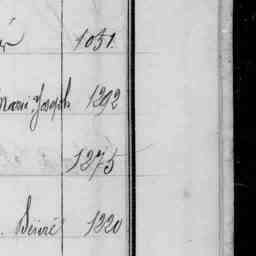 1031
Marie Joseph 1292
1275
Désiré 1320